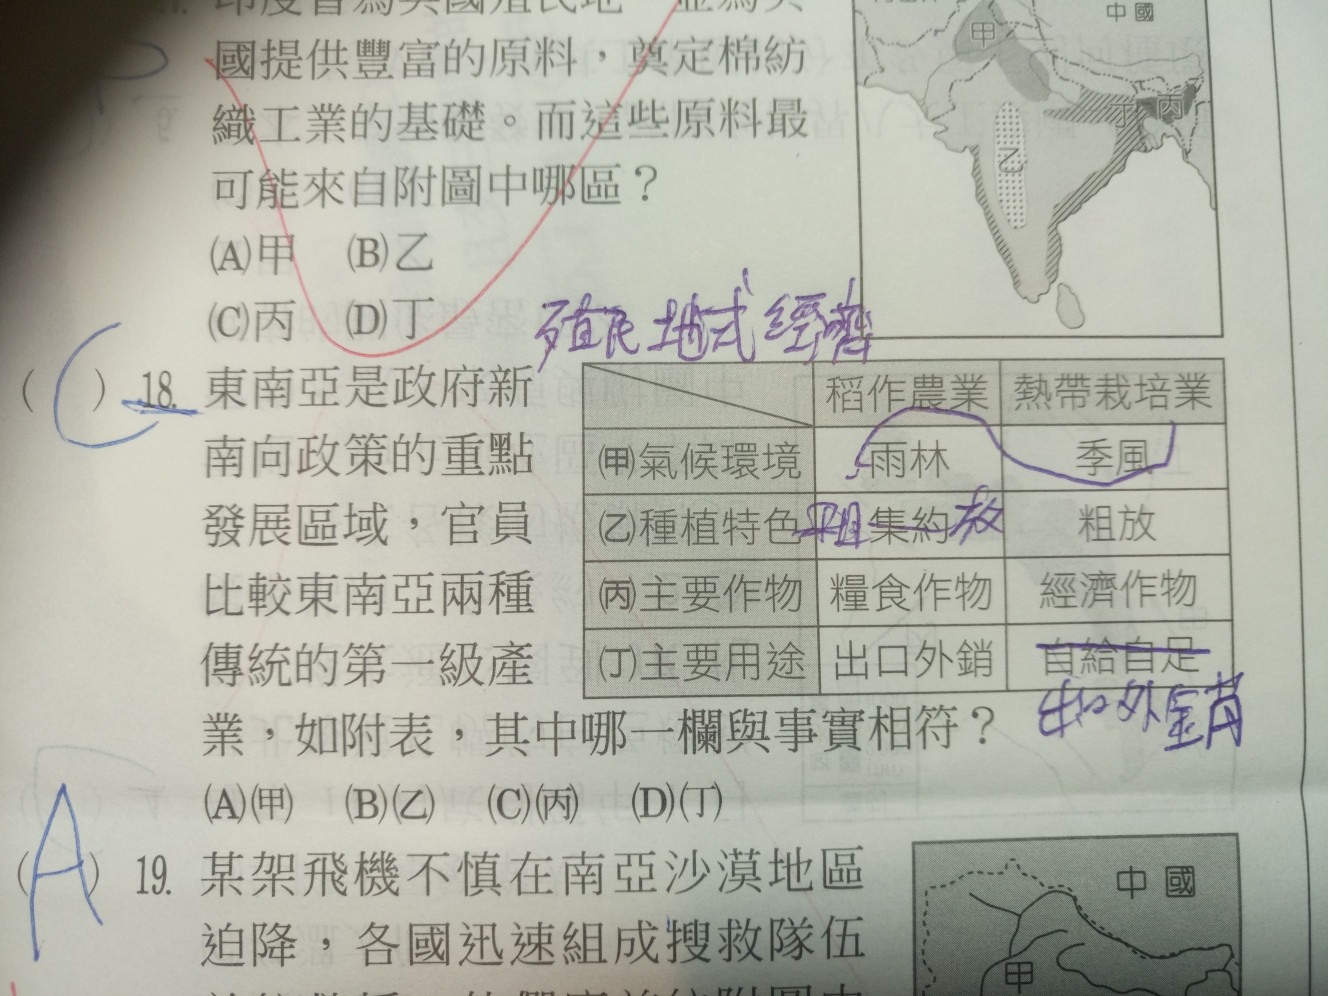 國提供豐富的原料，奠定棉紡
織工業的基礎。而這些原料最
可能來自附圖中哪區？
(A)甲 (B)乙
(C)丙 (D)丁
中國
甲
乙
丁
丙
殖民地式經濟
( C ) 18. 東南亞是政府新
南向政策的重點
發展區域，官員
比較東南亞兩種
傳統的第一級產
業，如附表，其中哪一欄與事實相符？
稻作農業 熱帶栽培業
(甲)氣候環境 雨林 季風
(乙)種植特色 集約 粗放
粗 放
(丙)主要作物 糧食作物 經濟作物
(丁)主要用途 出口外銷 自給自足
出口外銷
(A)(甲) (B)(乙) (C)(丙) (D)(丁)
( A ) 19. 某架飛機不慎在南亞沙漠地區
迫降，各國迅速組成搜救隊伍
中國
甲